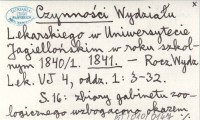 Czynności Wydziału
Lekarskiego w Uniwersytecie
Jagiellońskim w roku szkol-
nym 1840/1. 1841. - Rocz. Wydz.
Lek. UJ 4, oddz. 1: 3-32.
S. 16: zbiory gabinetu zoo-
logicznego wzbogacono okazem